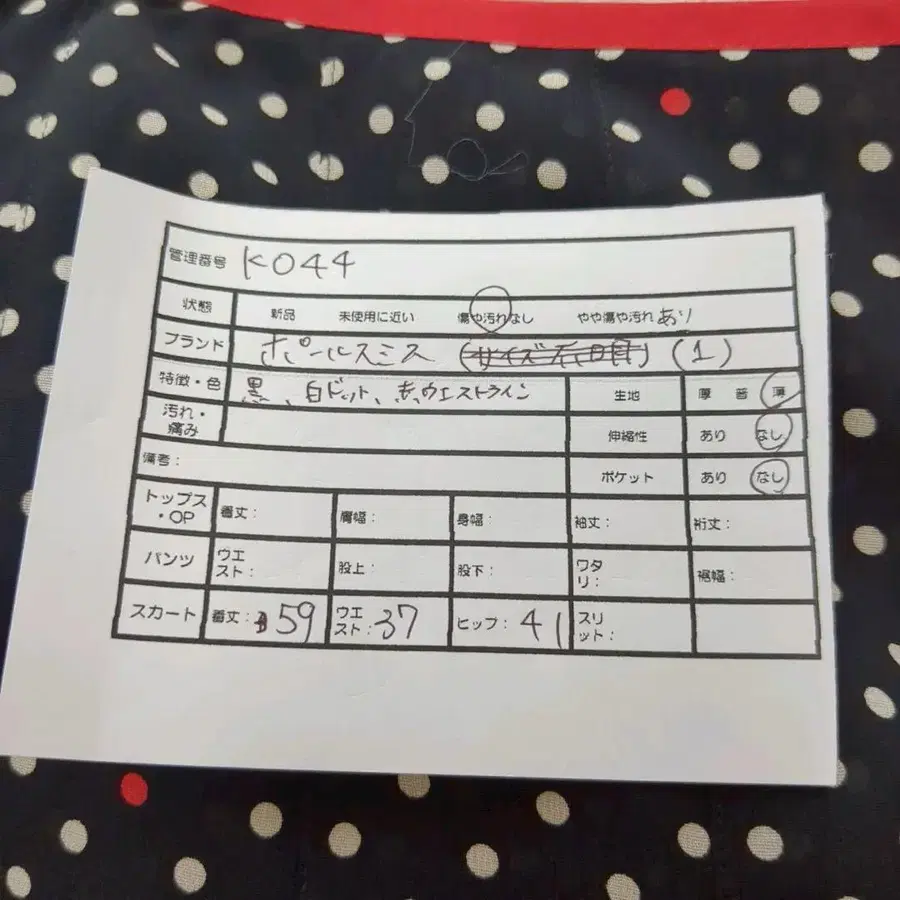 管理番号 K044
状態 新品 未使用に近い 傷や汚れなし やや傷や汚れ あり
ブランド ポールスミス (サイズ不明) (1)
特徴・色 黒、白ドット、赤ウエストライン 生地 厚 普 薄
汚れ・痛み 伸縮性 あり なし
備考: ポケット あり なし
トップス・OP 着丈: 肩幅: 身幅: 袖丈: 裄丈:
パンツ ウエスト: 股上: 股下: ワタリ: 裾幅:
スカート 着丈: 59 ウエスト: 37 ヒップ: 41 スリット: